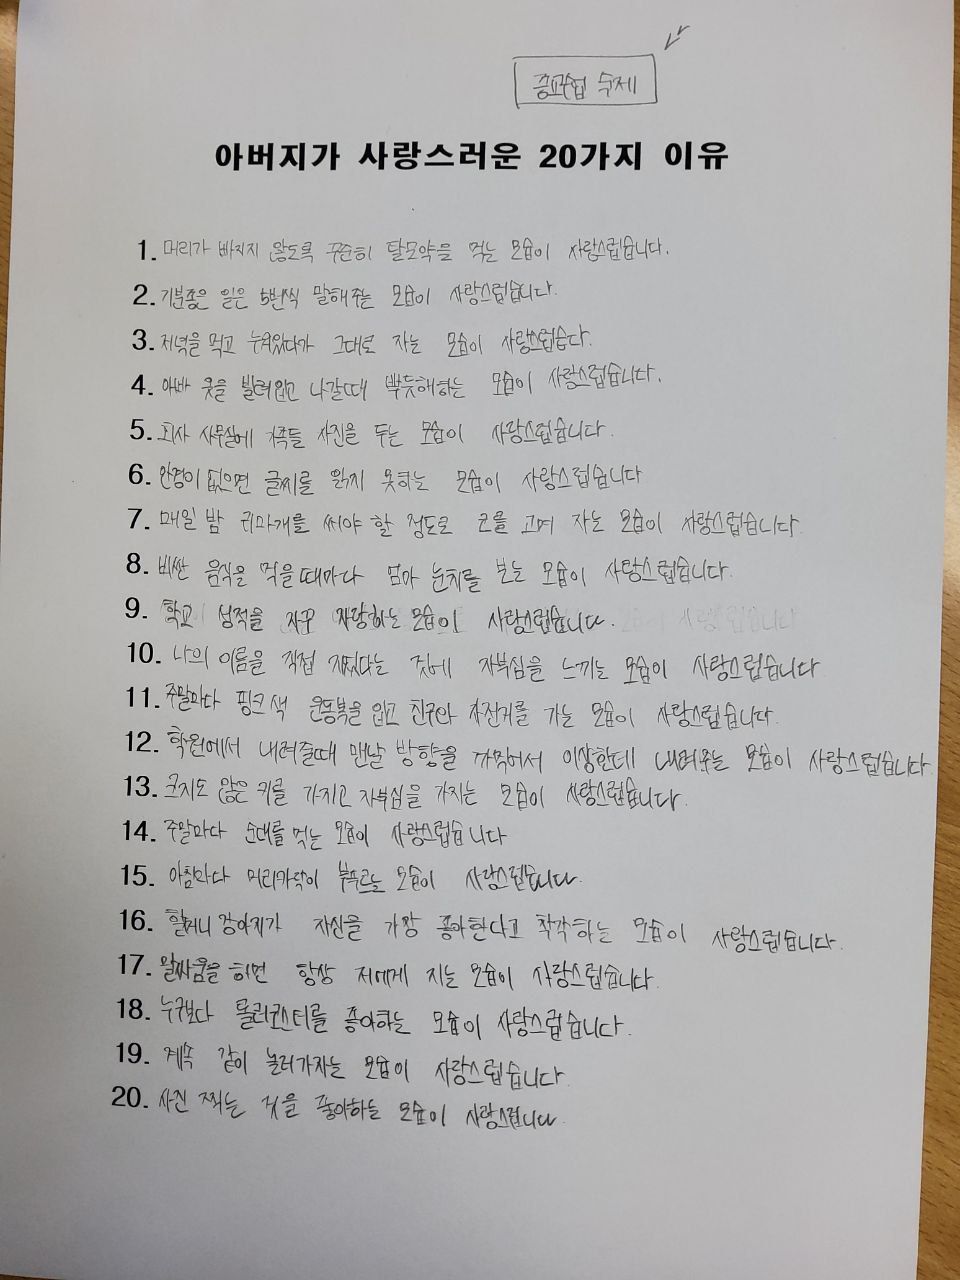 숙제
아버지가 사랑스러운 20가지 이유
1. 머리가 빠지지 않도록 꾸준히 탈모약을 먹는 모습이 사랑스럽습니다.
2. 기분좋은 일은 5번씩 말해주는 모습이 사랑스럽습니다.
3. 저녁을 먹고 누워있다가 그대로 자는 모습이 사랑스럽습니다.
4. 아빠 옷을 빌려입고 나갈때 뿌듯해하는 모습이 사랑스럽습니다.
5. 회사 사무실에 가족들 사진을 두는 모습이 사랑스럽습니다.
6. 안경이 없으면 글씨를 읽지 못하는 모습이 사랑스럽습니다
7. 매일 밤 귀마개를 써야 할 정도로 코를 고며 자는 모습이 사랑스럽습니다.
8. 비싼 음식을 먹을때마다 엄마 눈치를 보는 모습이 사랑스럽습니다.
9. 학교 성적을 자꾸 자랑하는 모습이 사랑스럽습니다.
10. 나의 이름을 직접 지었다는 것에 자부심을 느끼는 모습이 사랑스럽습니다
11. 주말마다 핑크색 운동복을 입고 친구와 자전거를 가는 모습이 사랑스럽습니다.
12. 학원에서 내려줄때 맨날 방향을 까먹어서 이상한데 내려주는 모습이 사랑스럽습니다.
13. 크지도 않은 키를 가지고 자부심을 가지는 모습이 사랑스럽습니다.
14. 주말마다 순대를 먹는 모습이 사랑스럽습니다
15. 아침마다 머리카락이 부푸르는 모습이 사랑스럽습니다.
16. 할머니 강아지가 자신을 가장 좋아한다고 착각하는 모습이 사랑스럽습니다.
17. 말싸움을 하면 항상 저에게 지는 모습이 사랑스럽습니다.
18. 누구보다 롤러코스터를 좋아하는 모습이 사랑스럽습니다.
19. 계속 같이 놀러가자는 모습이 사랑스럽습니다.
20. 사진 찍는 것을 좋아하는 모습이 사랑스럽니다.